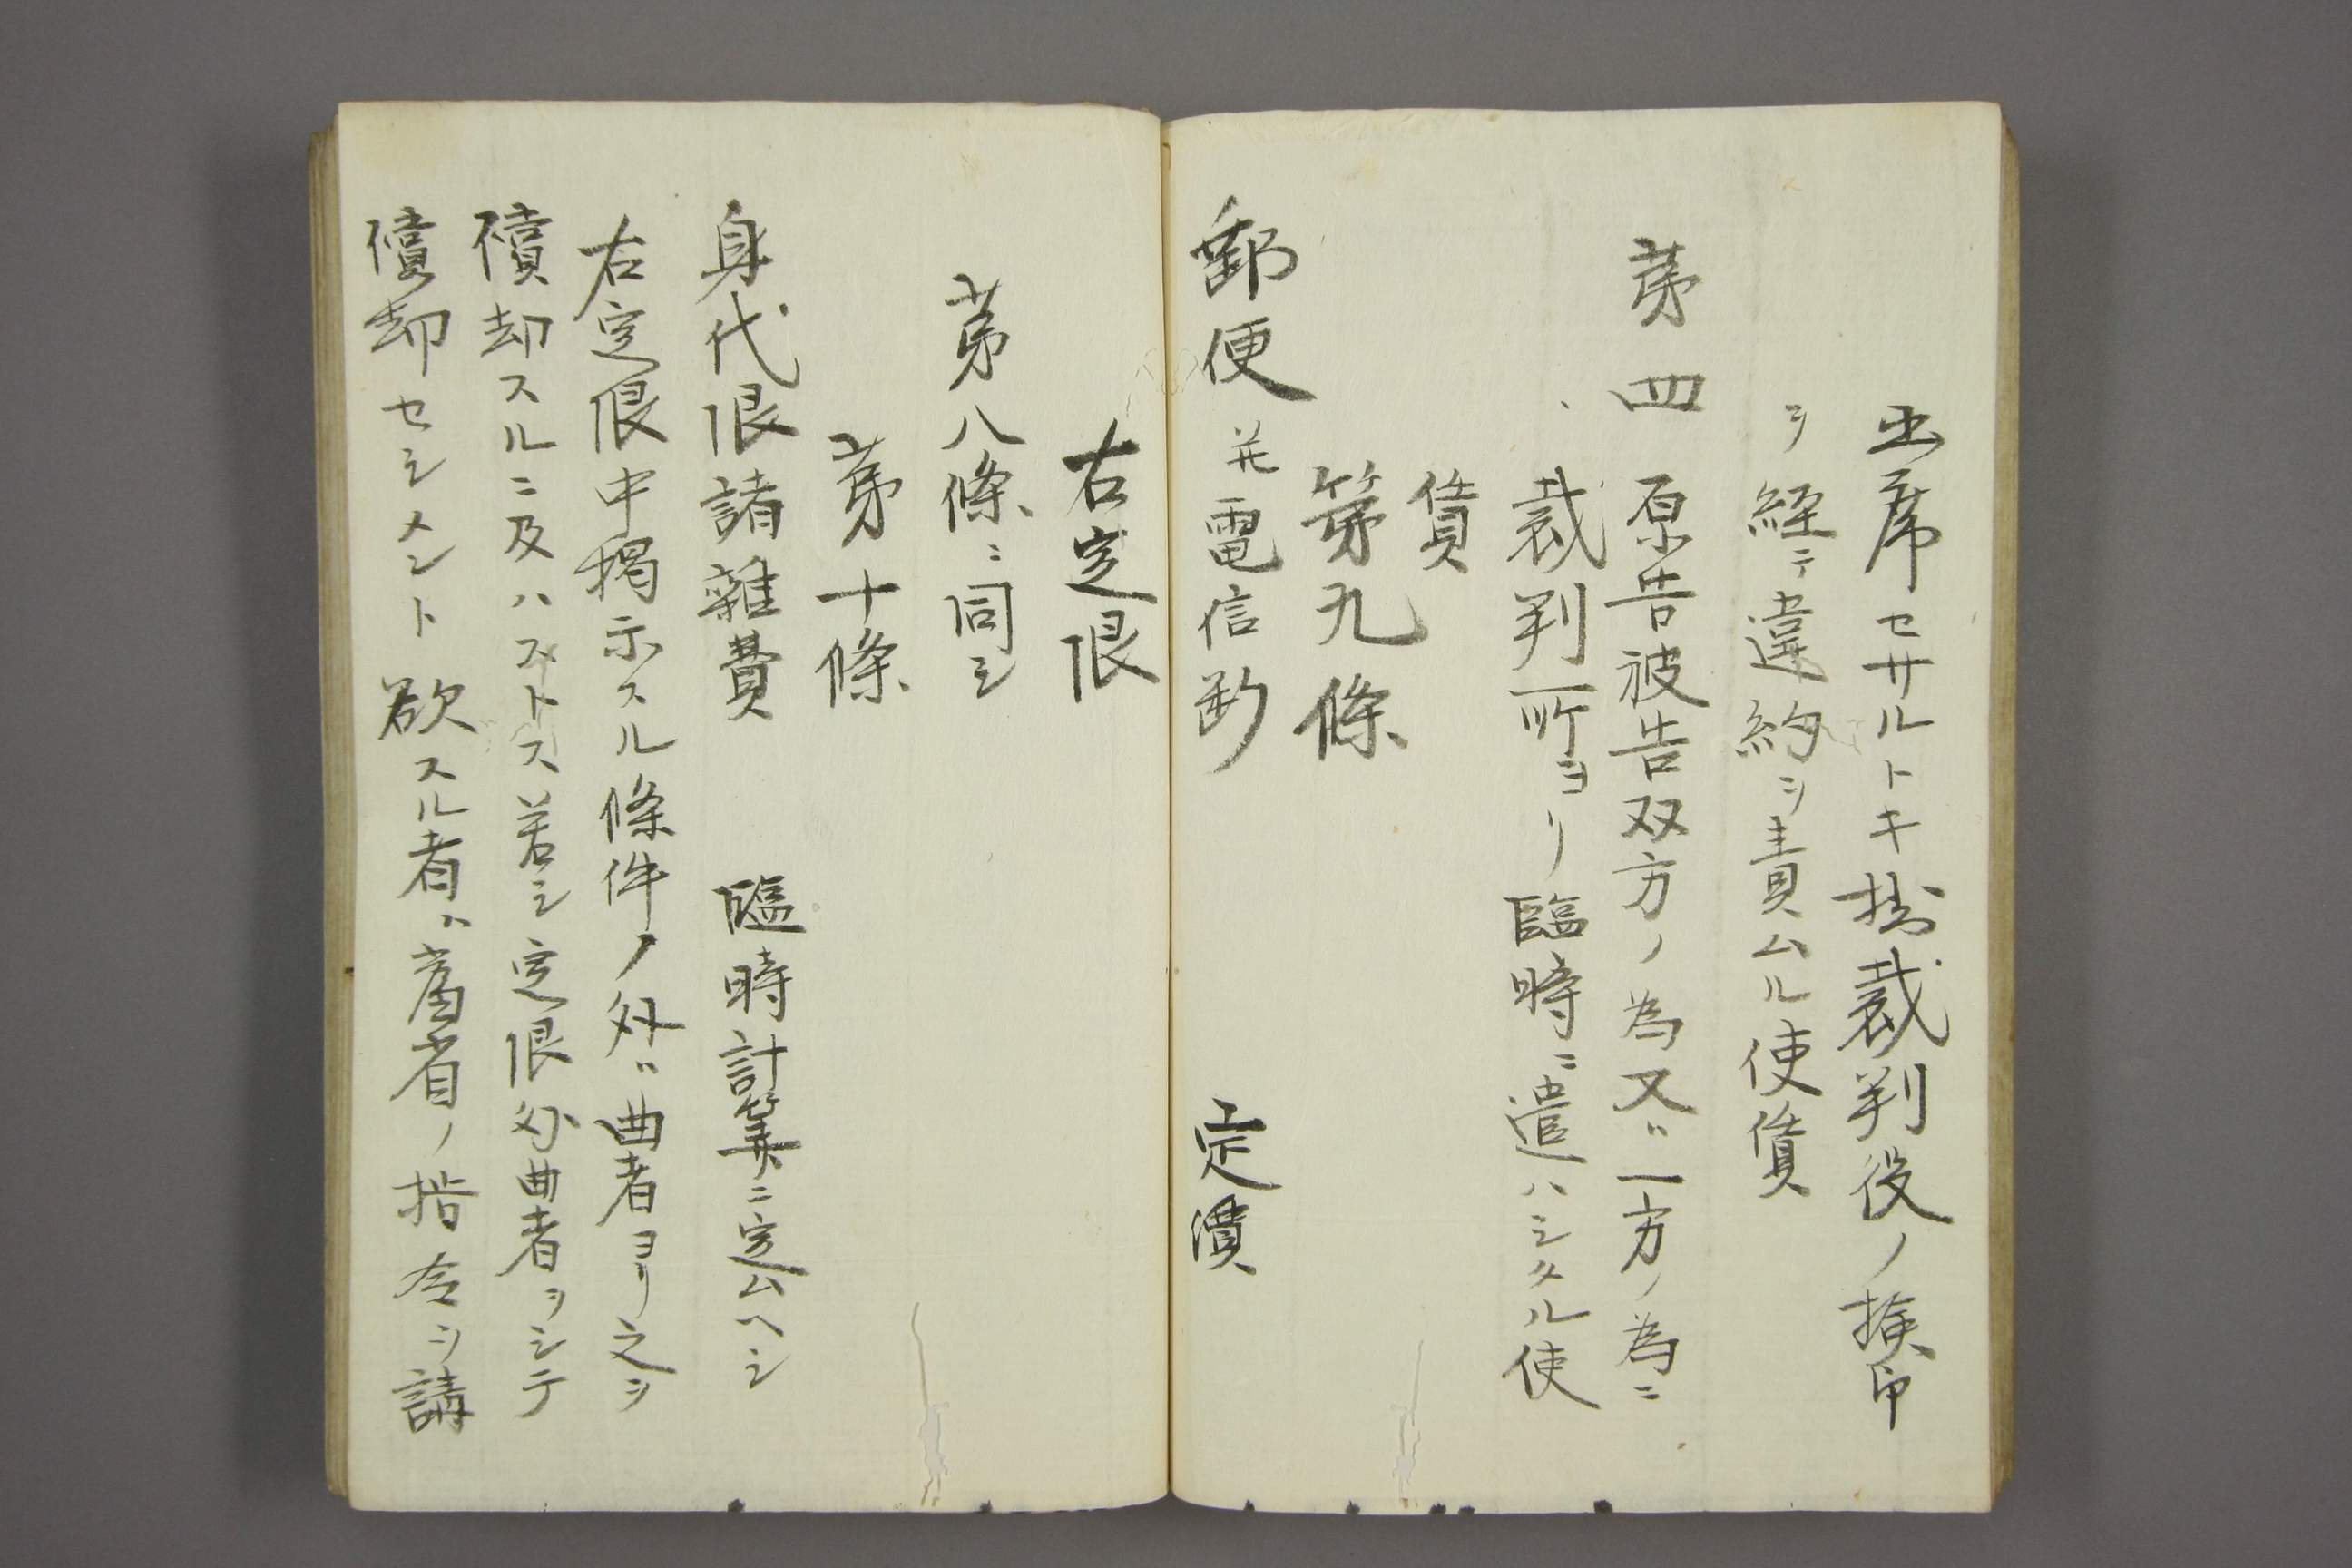 出席セサルトキ掛裁判役ノ検印
ヲ経テ違約ヲ責ムル使賃
第四 原告被告双方ノ為又ハ一方ノ為ニ
裁判所ヨリ臨時ニ遣ハシタル使
賃
第九條
郵便并電信料 定漬
右定限
第八條ニ同シ
第十條
身代限諸雑費 臨時計算ニ定ムヘシ
右定限中掲示スル條件ノ外ハ曲者ヨリ之ヲ
償却スルニ及ハストス若シ定限外曲者ヲシテ
償却セシメント欲スル者ハ當省ノ指令ヲ請